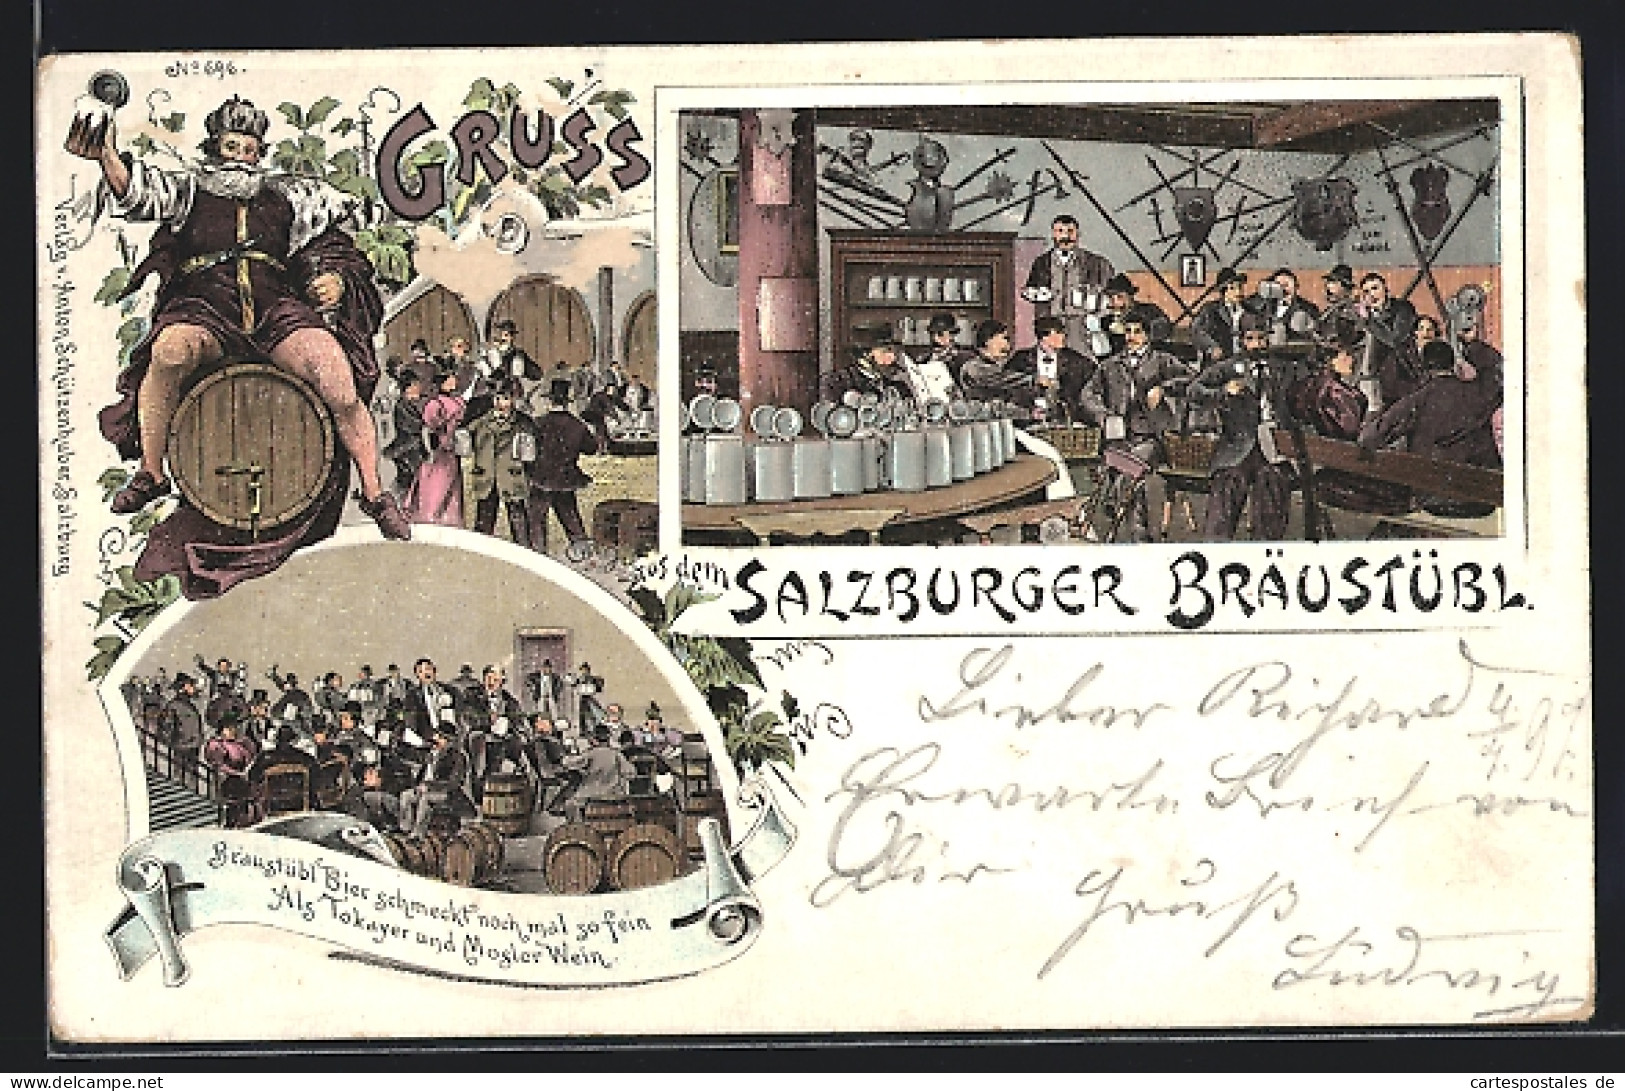 No 696.
GRUSS
aus dem
SALZBURGER BRÄUSTÜBL.
Verlag v. Anton Schützenhuber Salzburg
Bräustübl Bier schmeckt noch mal so fein
Als Tokayer und Mosler Wein.
Lieber Richard 4/4. 97.
Erwarte Brief von
Dir Gruß
Ludwig
cartespostales de